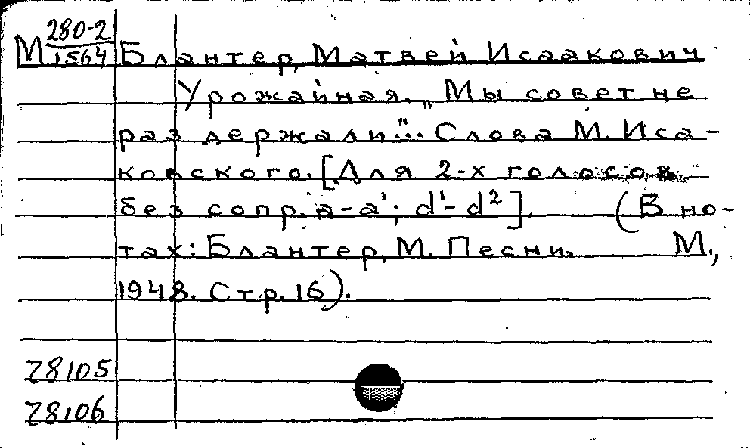 М 280-2
1564 Блантер, Матвей Исаакович
Урожайная. „Мы совет не
раз держали"... Слова М. Иса-
ковского. [Для 2-х голосов
без сопр. a-a¹; d¹-d²]. (В но-
тах: Блантер, М. Песни. М.,
1948. Стр. 16).
Z8105
Z8106